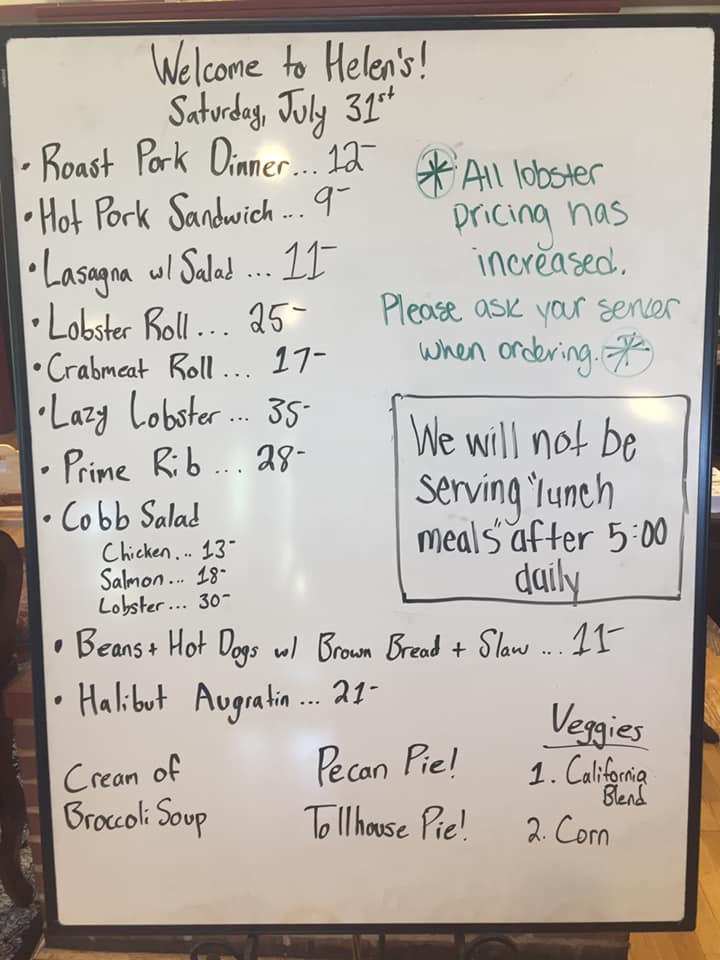 Welcome to Helen's!
Saturday, July 31st
• Roast Pork Dinner... 12-
• Hot Pork Sandwich... 9-
• Lasagna w/ Salad ... 11-
• Lobster Roll... 25-
• Crabmeat Roll ... 17-
• Lazy Lobster ... 35-
• Prime Rib ... 28-
• Cobb Salad
Chicken... 13-
Salmon... 18-
Lobster... 30-
• Beans + Hot Dogs w/ Brown Bread + Slaw ... 11-
• Halibut Augratin ... 21-
* All lobster
pricing has
increased.
Please ask your server
when ordering. *
We will not be
serving "lunch
meals" after 5:00
daily
Cream of
Broccoli Soup
Pecan Pie!
Tollhouse Pie!
Veggies
1. California
Blend
2. Corn